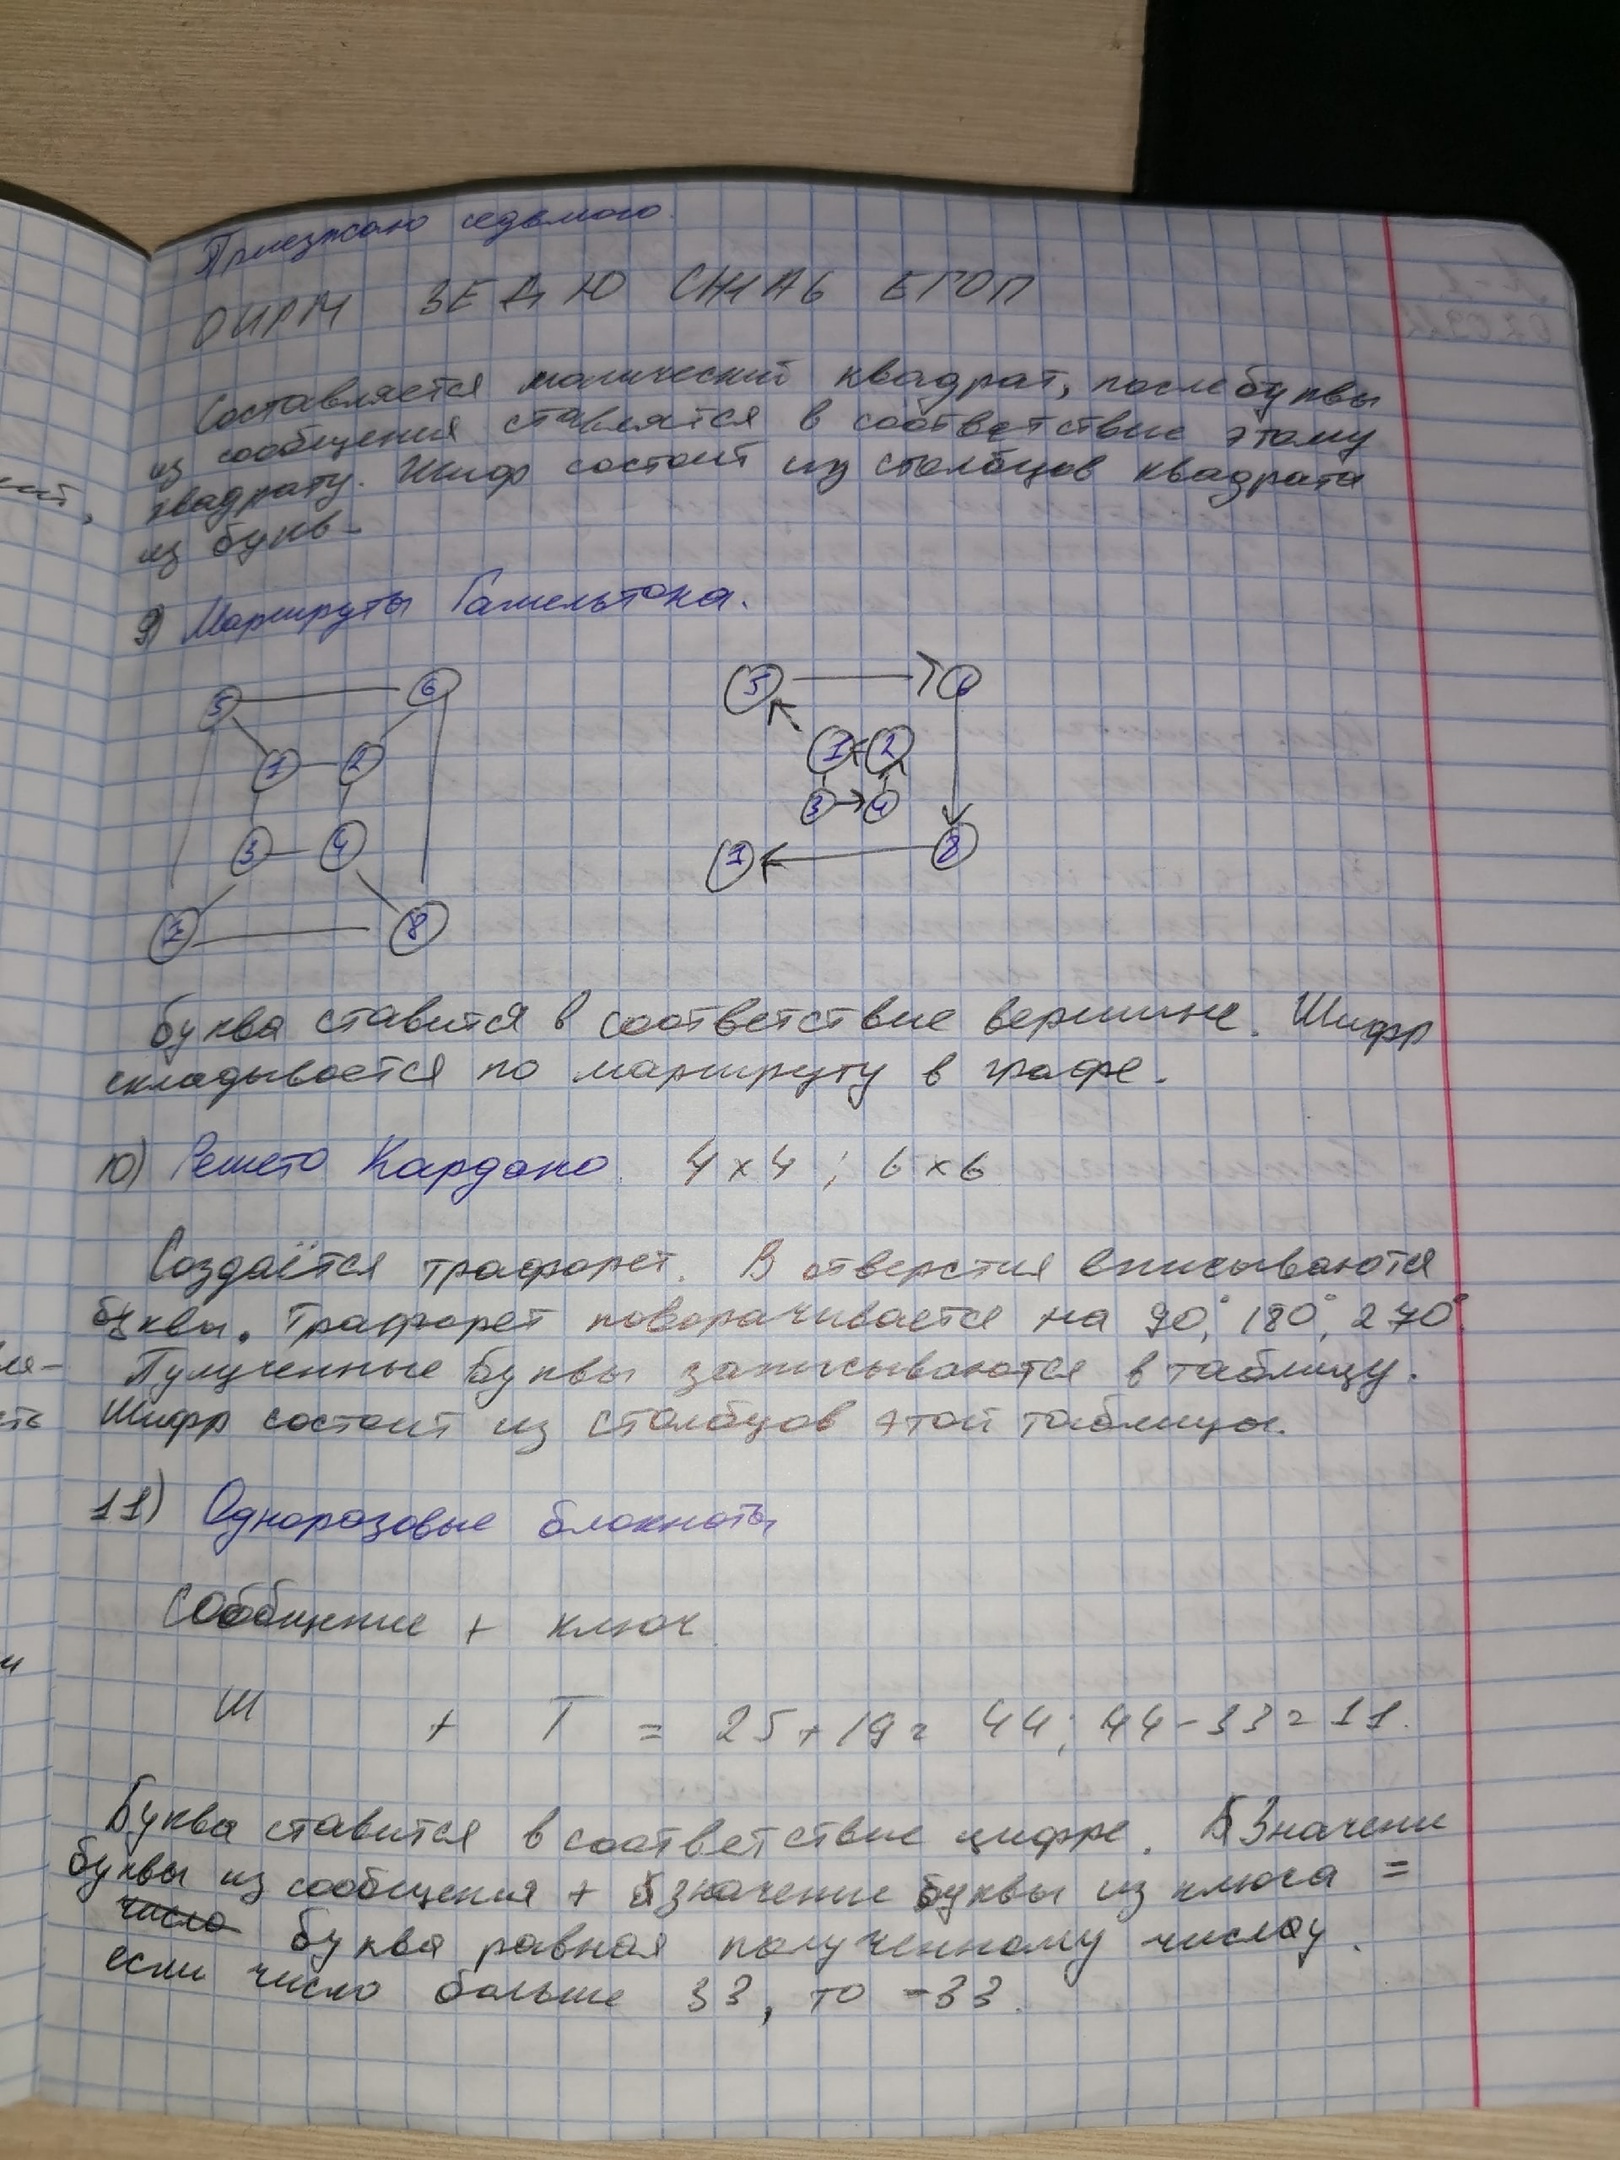 Приезжаю седьмого.
ОИРМ ЗЕДЮ
ЕГОП
Составляется магический квадрат, после буквы
из сообщения ставятся в соответствие этому
квадрату. Шифр состоит из столбцов квадрата
из букв.
9) Маршруты Гамельтона.
5 6
1 2
3 4
7 8
5 6
1 2
3 4
7 8
Буква ставится в соответствие вершине. Шифр
складывается по маршруту в графе.
10) Решето Кардано. 4x4; 6x6
Создаётся трафорет. В отверстия вписываются
буквы. Трафорет поворачивается на 90°, 180°, 270°.
Пулученные буквы записываются в таблицу.
Шифр состоит из столбцов этой таблицы.
11) Одноразовые блокноты
Сообщение + ключ.
Ш + Т = 25+19= 44; 44-33=11.
Буква ставится в соответствие цифре. Значение
буквы из сообщения + значение буквы из ключа =
число буква равная полученному числу.
если число больше 33, то -33.